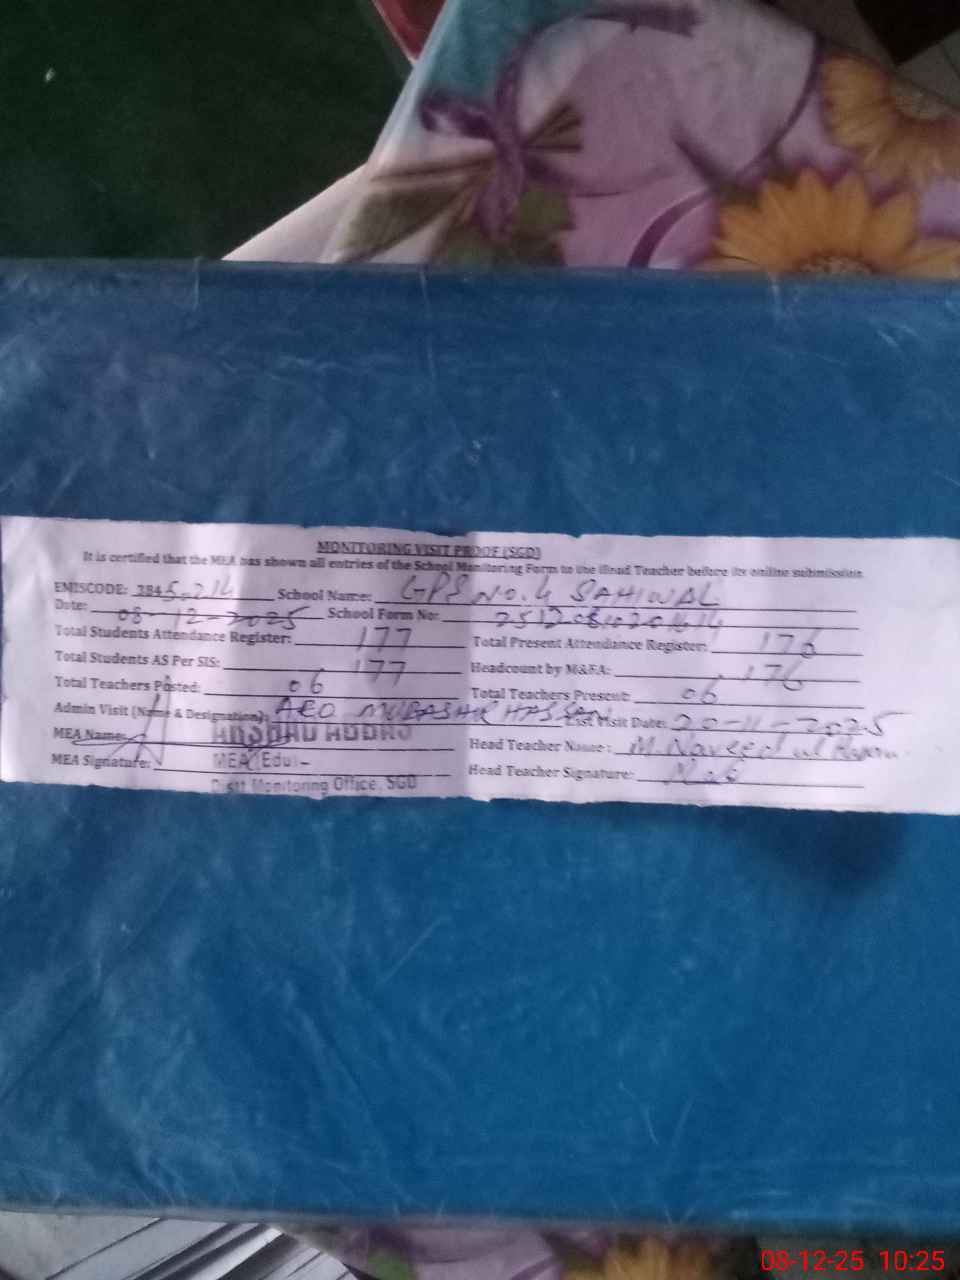 MONITORING VISIT PROOF (SGD)
It is certified that the MEA has shown all entries of the School Monitoring Form to the Head Teacher before its online submission
EMISCODE: 3845 214 School Name: GPS NO. 4 SAHIWAL
Date: 08-12-2025 School Form No:
Total Students Attendance Register: 177 Total Present Attendance Register: 176
Total Students AS Per SIS: 177 Headcount by M&EA: 176
Total Teachers Posted: 06 Total Teachers Present: 06
Admin Visit (Name & Designation): AEO MUBASHIR HASSAN Last Visit Date: 20-11-2025
MEA Name: ARSHAD ABBAS Head Teacher Name: M. Naveed ul
MEA Signature: MEA (Edu)- Head Teacher Signature:
Distt Monitoring Office, SGD
08-12-25 10:25